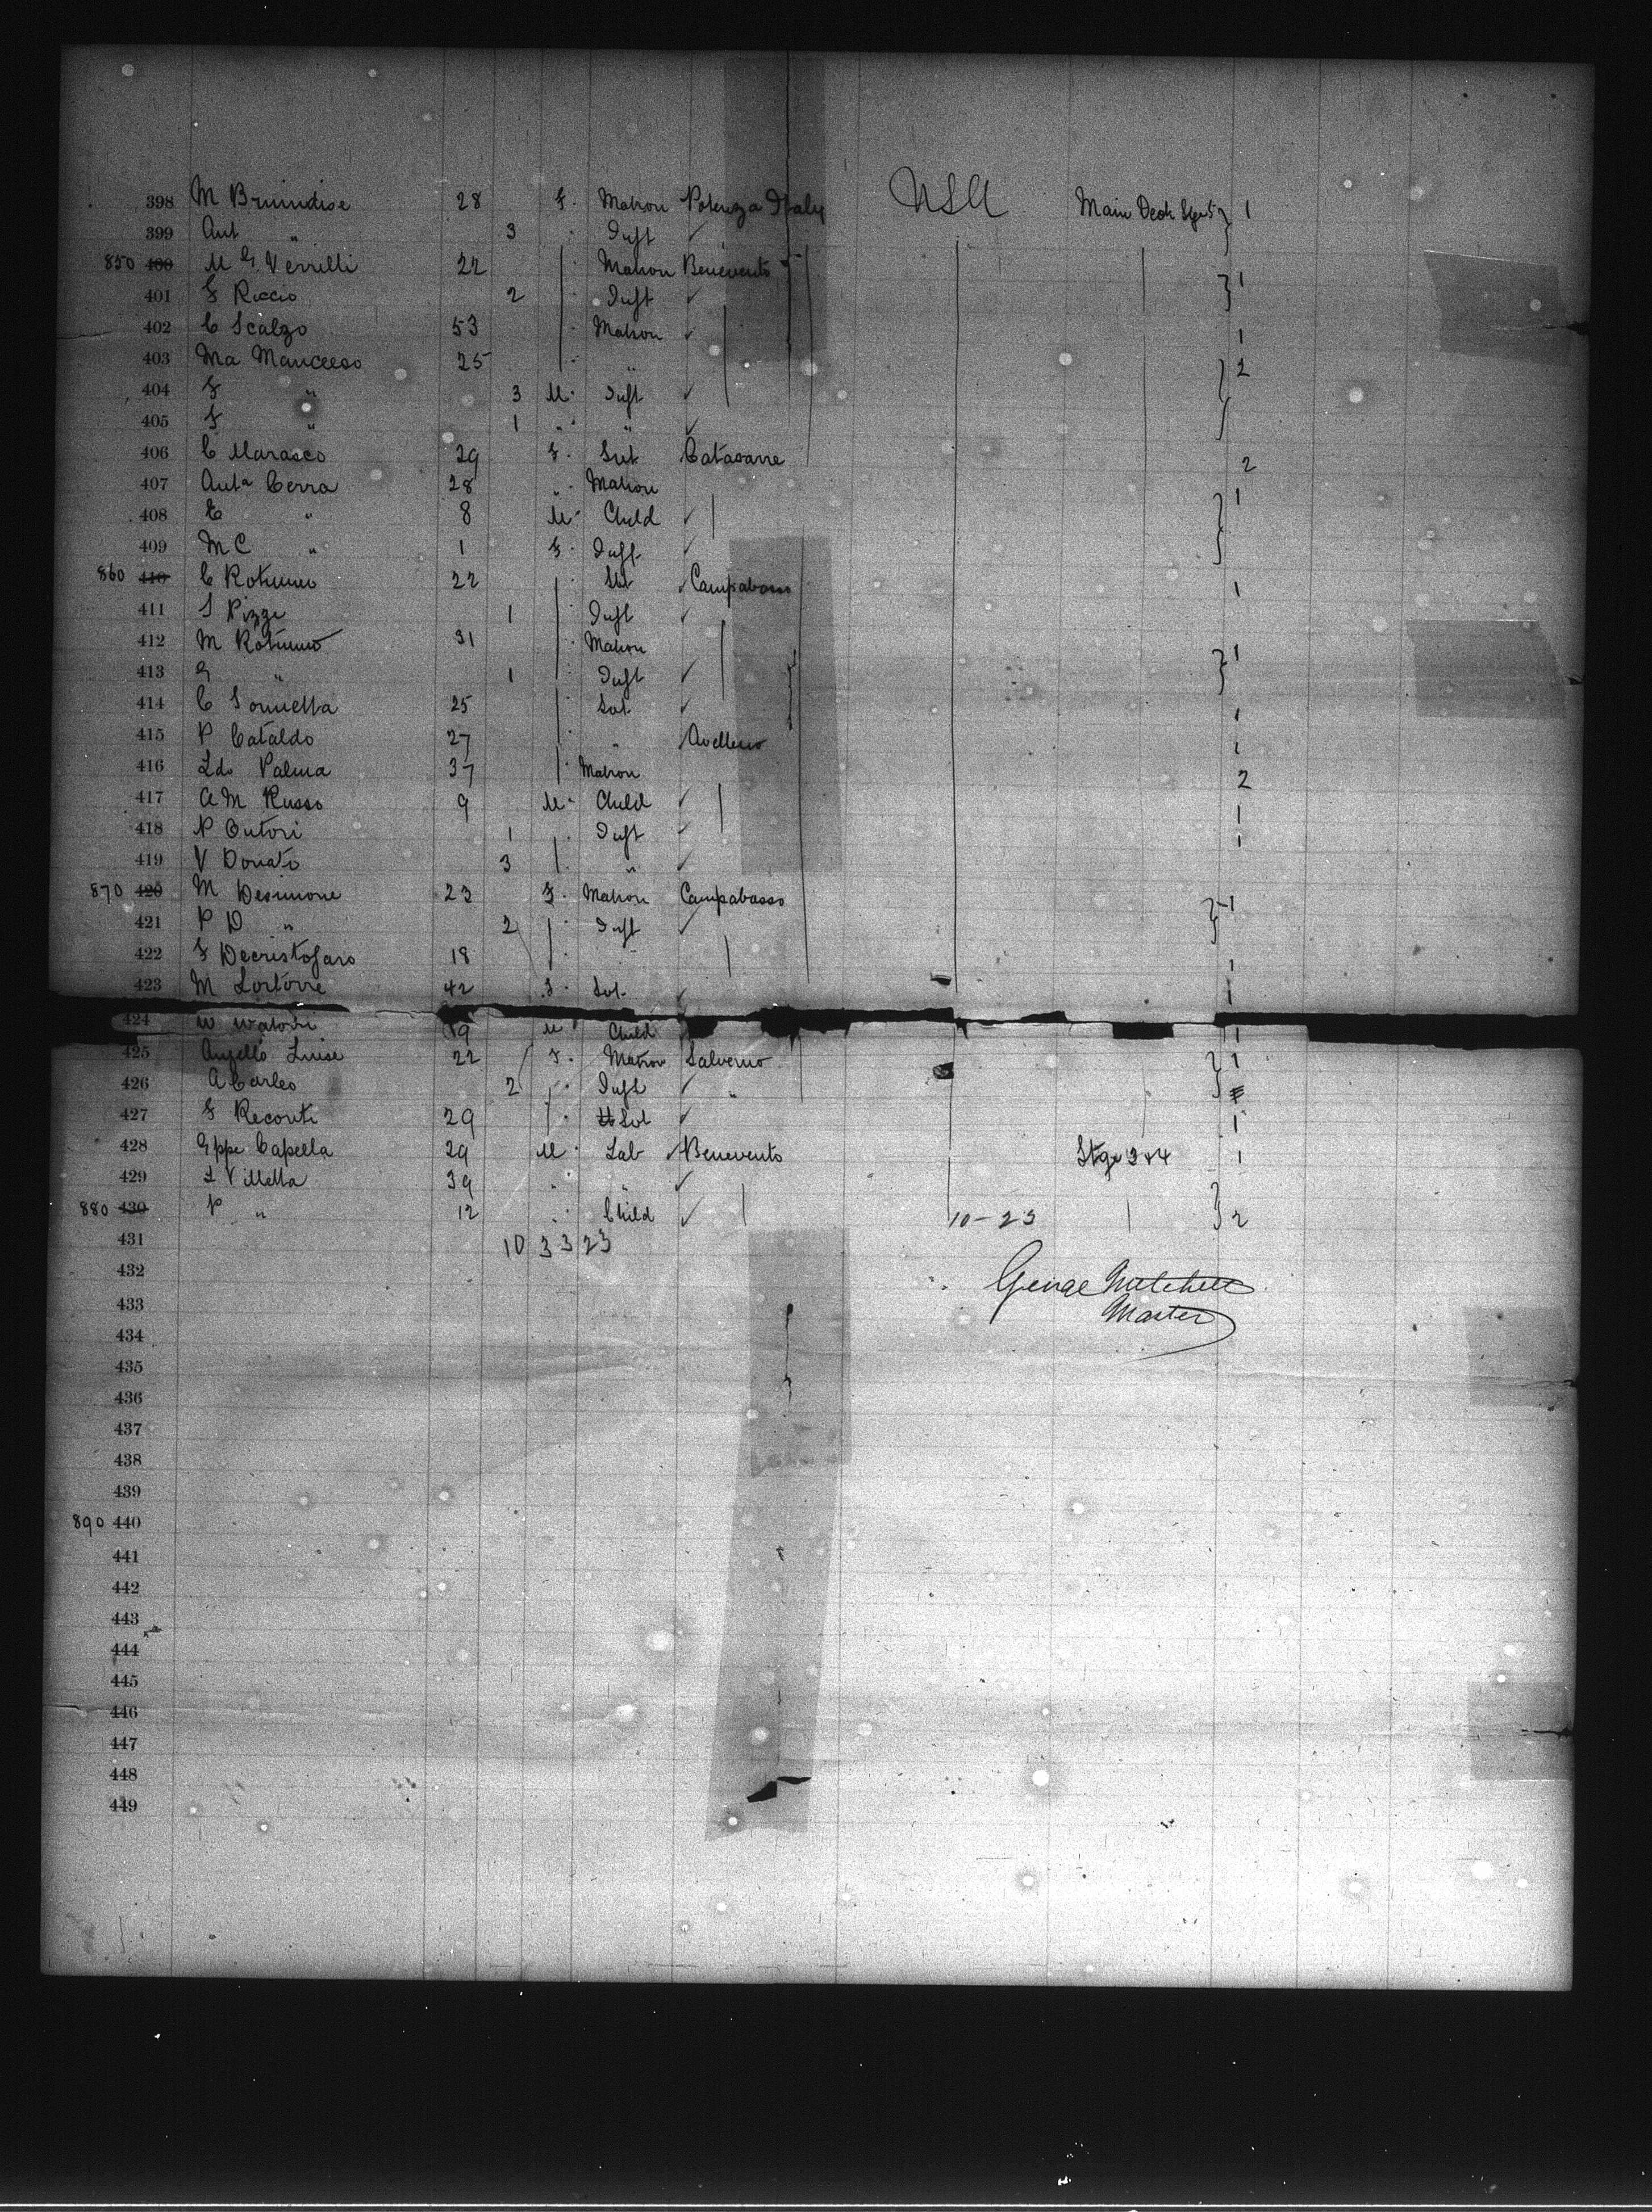 398 M Brinndise 28 F. Matron Potenza Italy USA Main Deck Stge 5 } 1
399 Ant " 3 Inft ✓
850 400 M G. Verrilli 22 Matron Benevento
401 F Riccio 2 Inft ✓ } 1
402 C Scalzo 53 Matron ✓ 1
403 Ma Mancuso 25 " 2
404 F " 3 M. Inft ✓
405 F " 1 " " ✓
406 C Marasco 29 F. Catasarre 2
407 Anta Cerra 28 " Matron
408 " 8 M. Child ✓ } 1
409 M C " 1 F. Inft ✓
860 410 C Rotunno 22 ✓ Campabasso 1
411 S Pizzi 1 Inft ✓
412 M Rotunno 31 Matron
413 G " 1 Inft ✓ } 1
414 C 25 Sut ✓ 1
415 P Cataldo 27 " Avellino 1
416 Ldo Palma 37 Matron 2
417 A M Russo 9 M. Child ✓ 1
418 P Cutori 1 Inft ✓ 1
419 V Donato 3 " ✓
870 420 M Desimone 23 F. Matron Campabasso
421 P D " 2 Inft ✓ } 1
422 F Decristofaro 18 1
423 M Lortorre 42 F. Sut ✓ 1
424 19 M Child 1
425 Angello Luise 22 F. Matron Salverno } 1
426 A Carleo 2 Inft ✓ "
427 F Reconti 29 Sut ✓ 1
428 Gppe Capella 29 M. Lab ✓ Benevento Stge 3 & 4 1
429 Villetta 39 " " ✓
880 430 P " 12 " Child ✓ 10-23 } 2
431 10 3 3 23
432 George Mitchell
433 Master
434
435
436
437
438
439
890 440
441
442
443
444
445
446
447
448
449